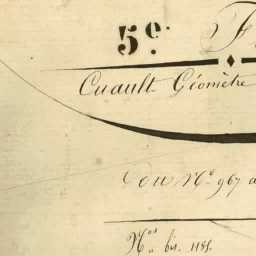 5e. F
Cuault Géomètre
du No. 967 a
Nos. bis. 1185.